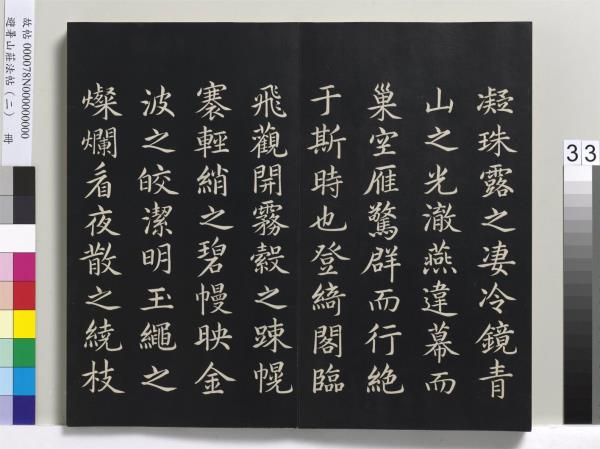 凝珠露之凄冷鏡青
山之光澈燕違幕而
巢空雁驚群而行絶
于斯時也登綺閣臨
飛觀開霧縠之踈幌
褰輕綃之碧幔映金
波之皎潔明玉繩之
燦爛看夜散之繞枝
故帖 000078N000000000
避暑山莊法帖(二) 冊
33